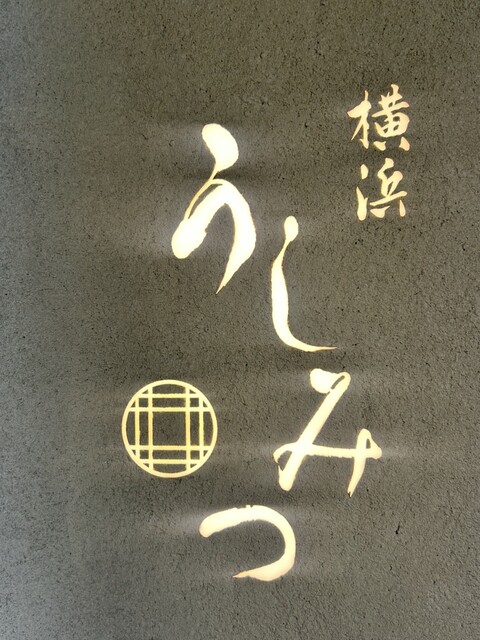 横浜
うしみつ